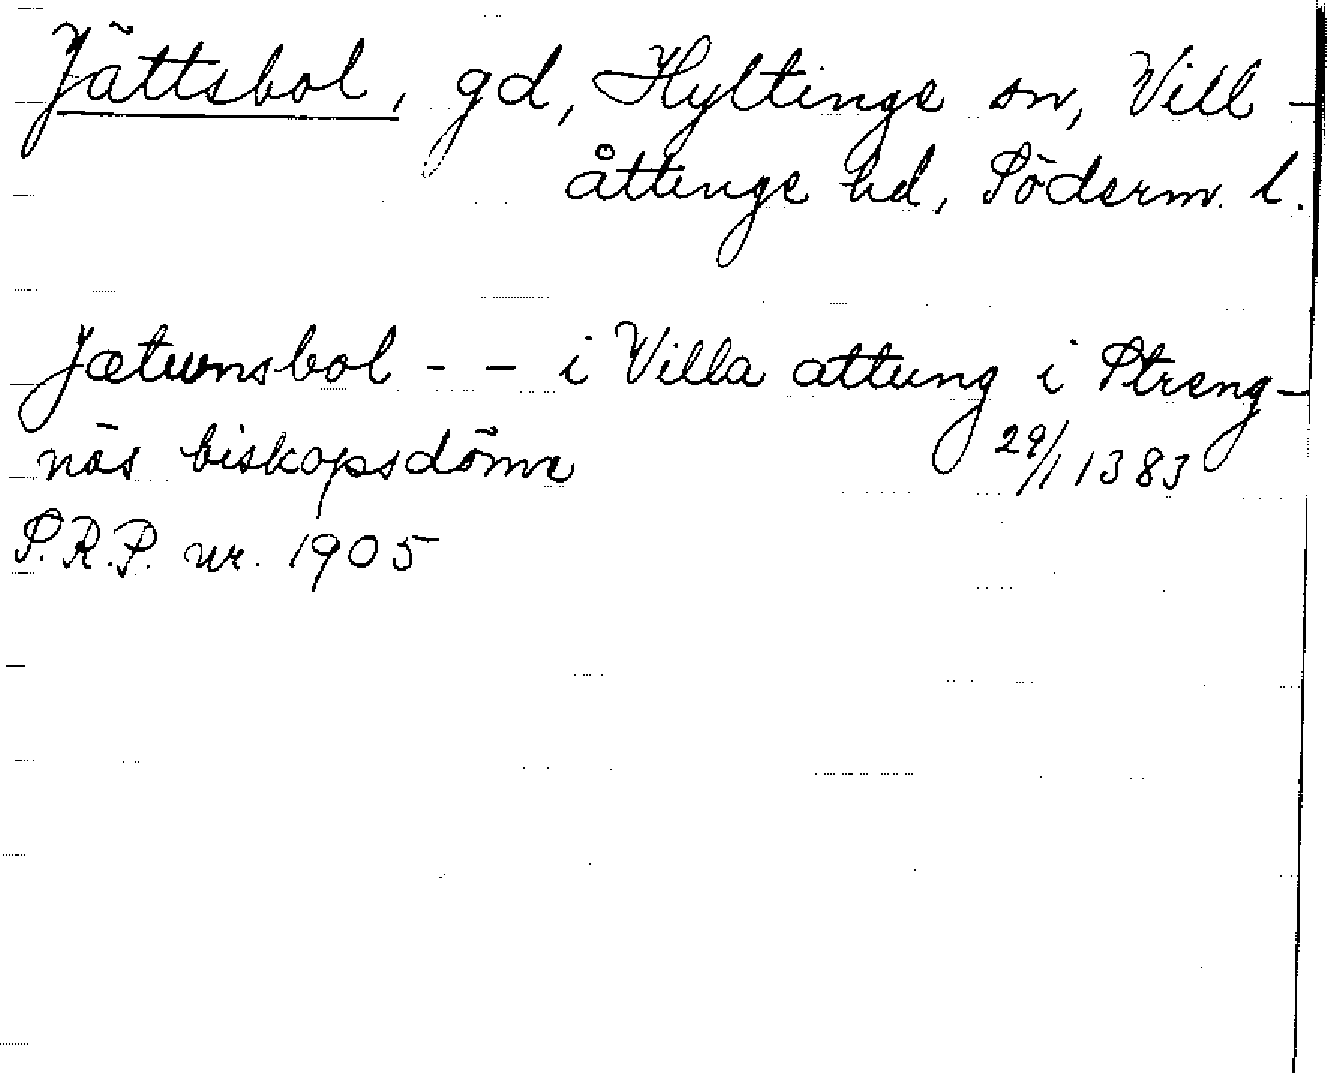 Jättsbol, gd, Hyltinge sn, Vill-
åttinge hd, Söderm. l.
Jætunsbol - - i Villa attung i Streng-
näs biskopsdöme 29/1 1383
S.R.P. nr. 1905